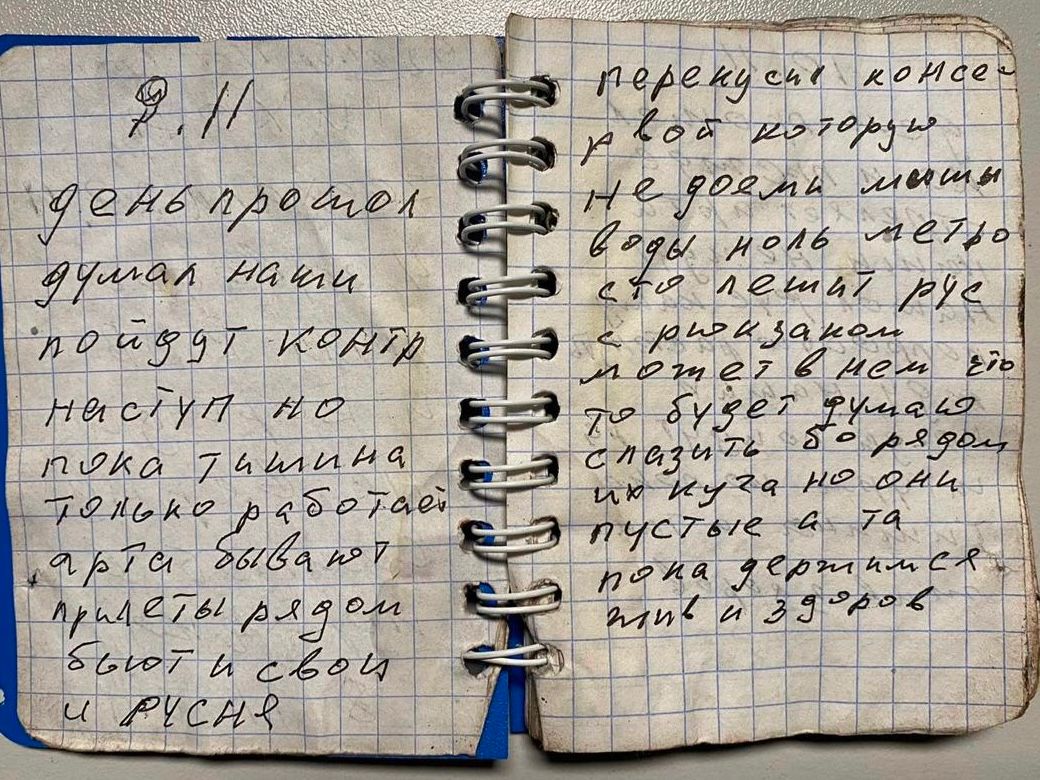 9.11
день прошол
думал наши
пойдут контр
наступ но
пока тишина
только работает
арта бывают
прилеты рядом
бьют и свои
и русня
перекусил консе-
рвой которую
не доели мыши
воды ноль метро
сто лешит рус
с рюкзаком
может в нем что
то будет думаю
слазить бо рядом
их куча но они
пустые а та
пока держимся
жив и здоров